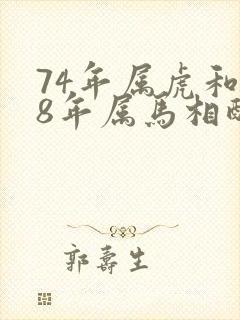 74年属虎和
8年属马相配
郭寿生